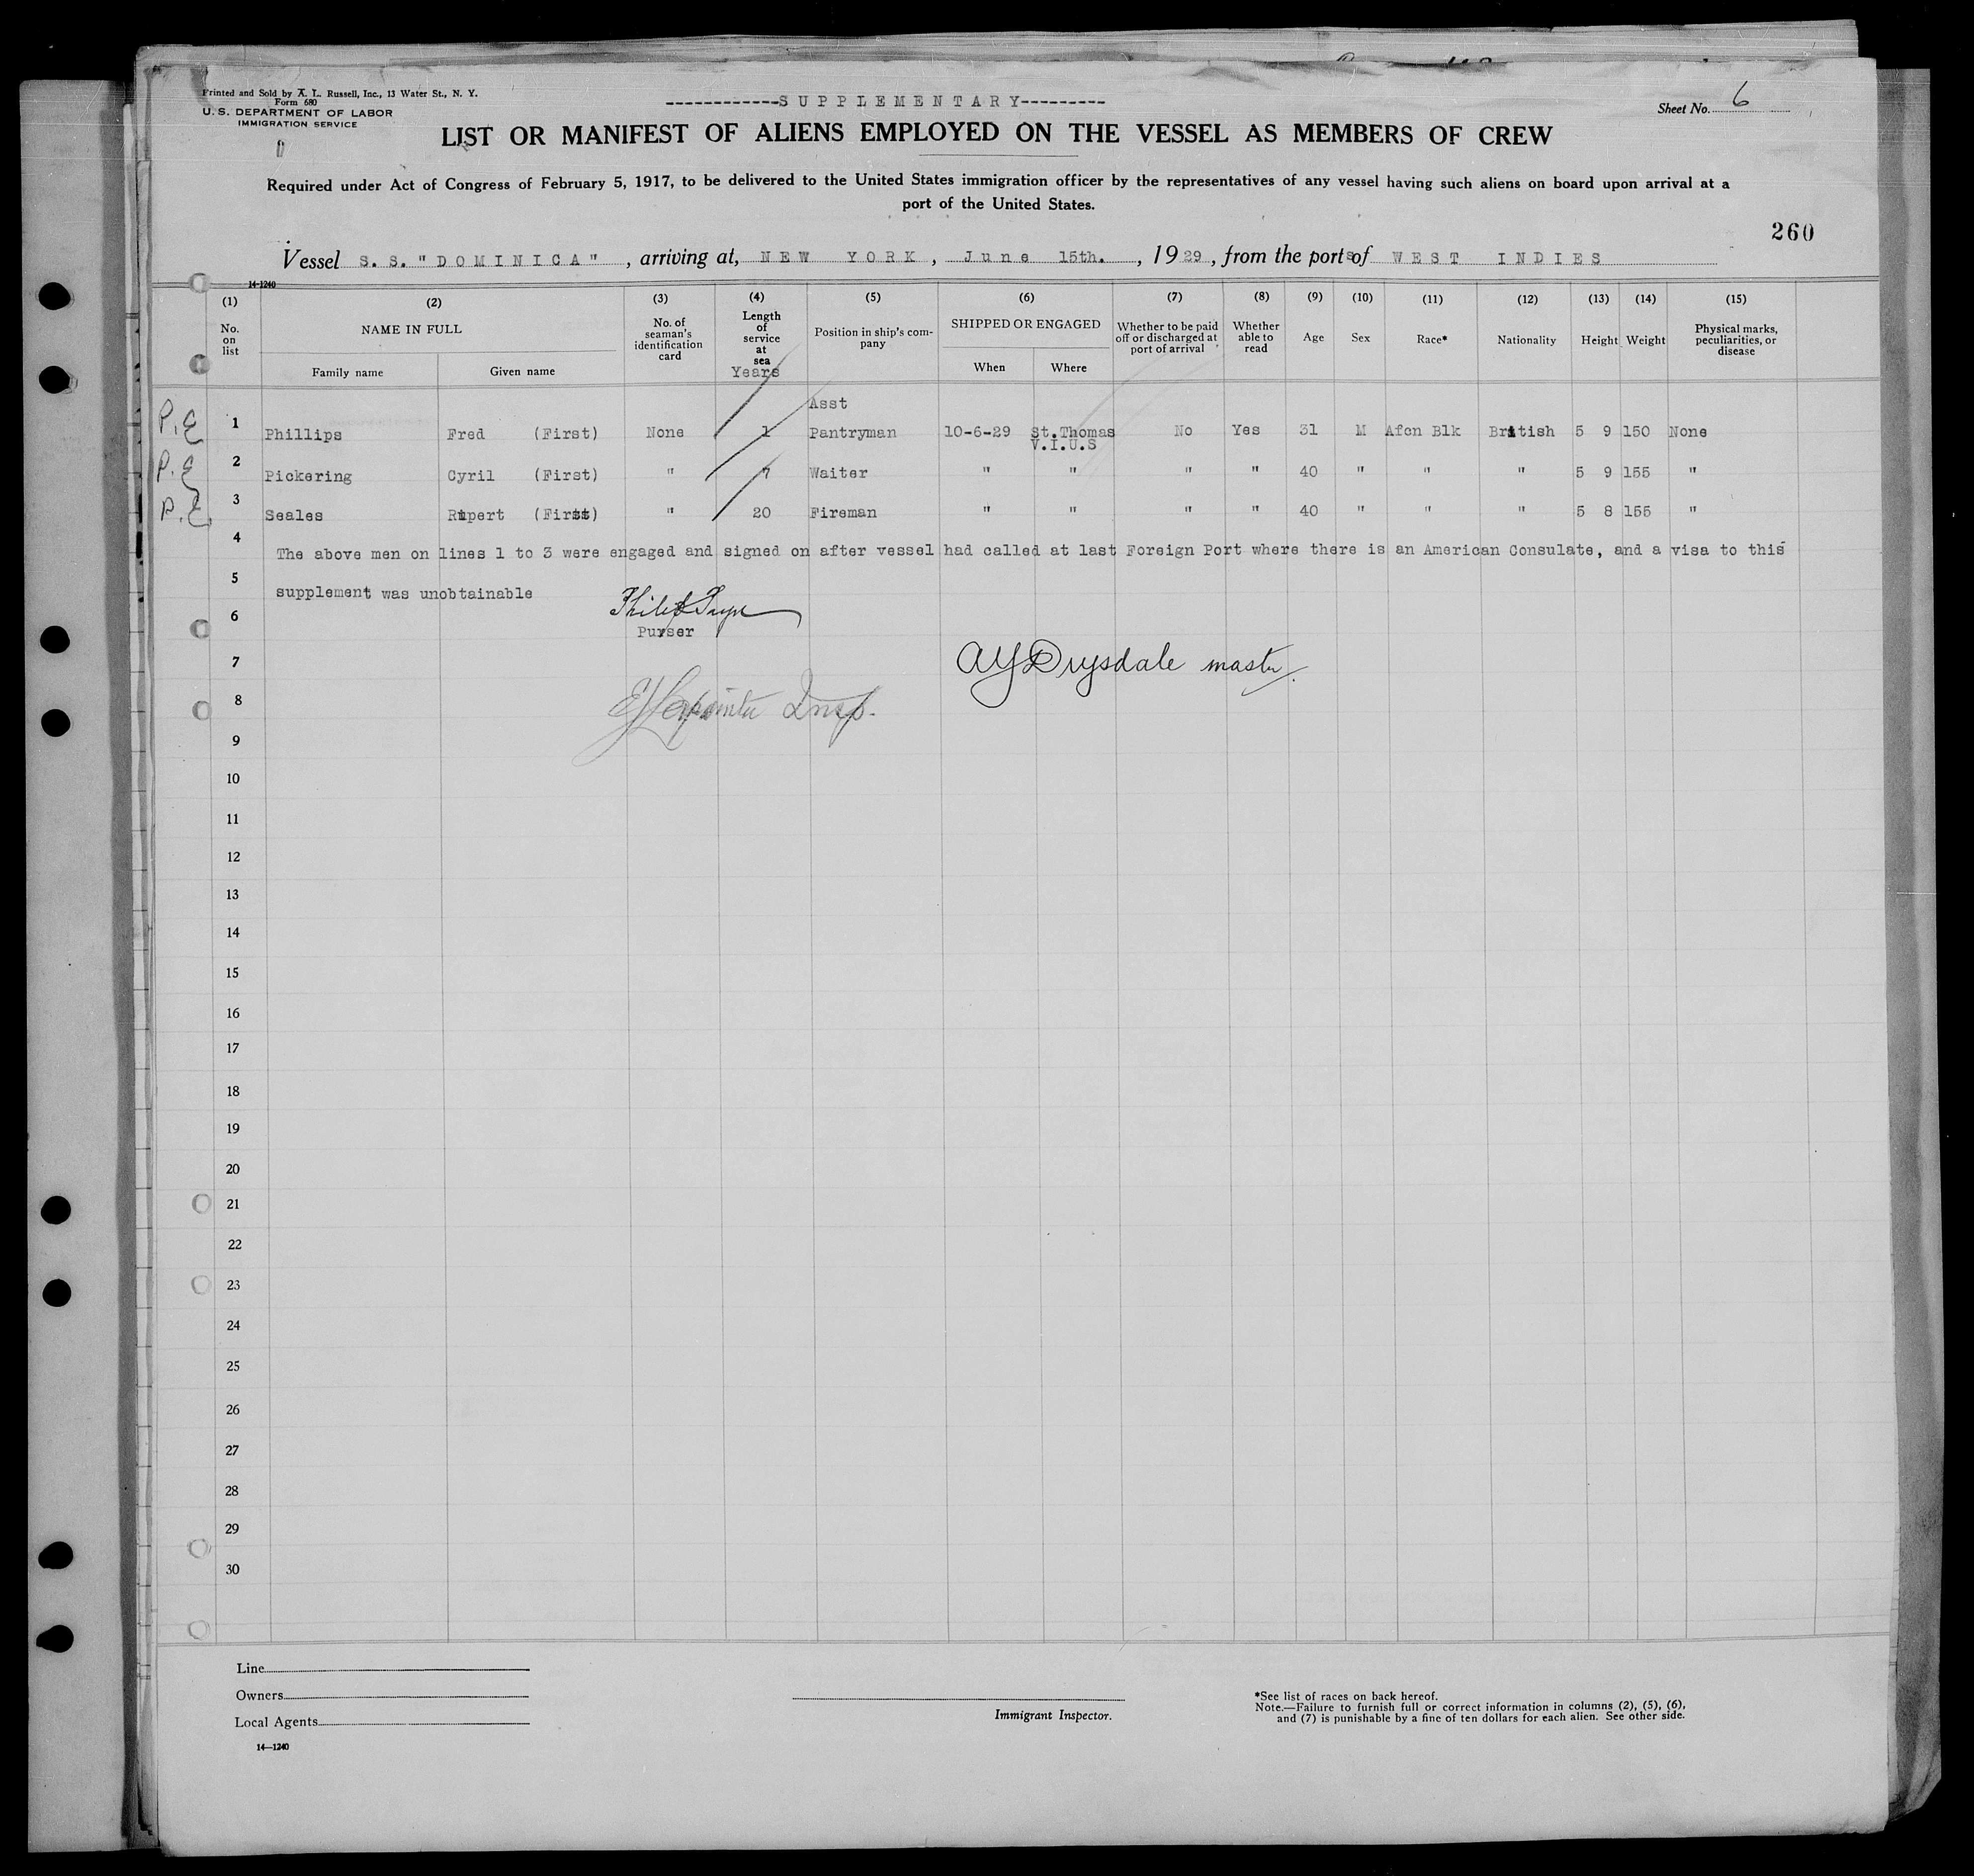 Printed and Sold by A. L. Russell, Inc., 13 Water St., N. Y.
Form 680
U. S. DEPARTMENT OF LABOR
IMMIGRATION SERVICE
------------SUPPLEMENTARY---------
Sheet No. 6
LIST OR MANIFEST OF ALIENS EMPLOYED ON THE VESSEL AS MEMBERS OF CREW
Required under Act of Congress of February 5, 1917, to be delivered to the United States immigration officer by the representatives of any vessel having such aliens on board upon arrival at a
port of the United States.
260
Vessel S. S. "DOMINICA", arriving at, NEW YORK, June 15th., 1929, from the ports of WEST INDIES
14-1240
(1) (2) (3) (4) (5) (6) (7) (8) (9) (10) (11) (12) (13) (14) (15)
No. on list NAME IN FULL No. of seaman's identification card Length of service at sea Position in ship's company SHIPPED OR ENGAGED Whether to be paid off or discharged at port of arrival Whether able to read Age Sex Race* Nationality Height Weight Physical marks, peculiarities, or disease
Family name Given name Years When Where
Asst
P.E 1 Phillips Fred (First) None 1 Pantryman 10-6-29 St.Thomas No Yes 31 M Afcn Blk British 5 9 150 None
V.I.U.S
P.E 2 Pickering Cyril (First) " 7 Waiter " " " " 40 " " " 5 9 155 "
P.E. 3 Seales Rupert (First) " 20 Fireman " " " " 40 " " " 5 8 155 "
4 The above men on lines 1 to 3 were engaged and signed on after vessel had called at last Foreign Port where there is an American Consulate, and a visa to this
5 supplement was unobtainable
6
Purser
7 AY Drysdale master.
8 Insp.
9
10
11
12
13
14
15
16
17
18
19
20
21
22
23
24
25
26
27
28
29
30
Line
Owners
Local Agents
14—1240
Immigrant Inspector.
*See list of races on back hereof.
Note.—Failure to furnish full or correct information in columns (2), (5), (6),
and (7) is punishable by a fine of ten dollars for each alien. See other side.